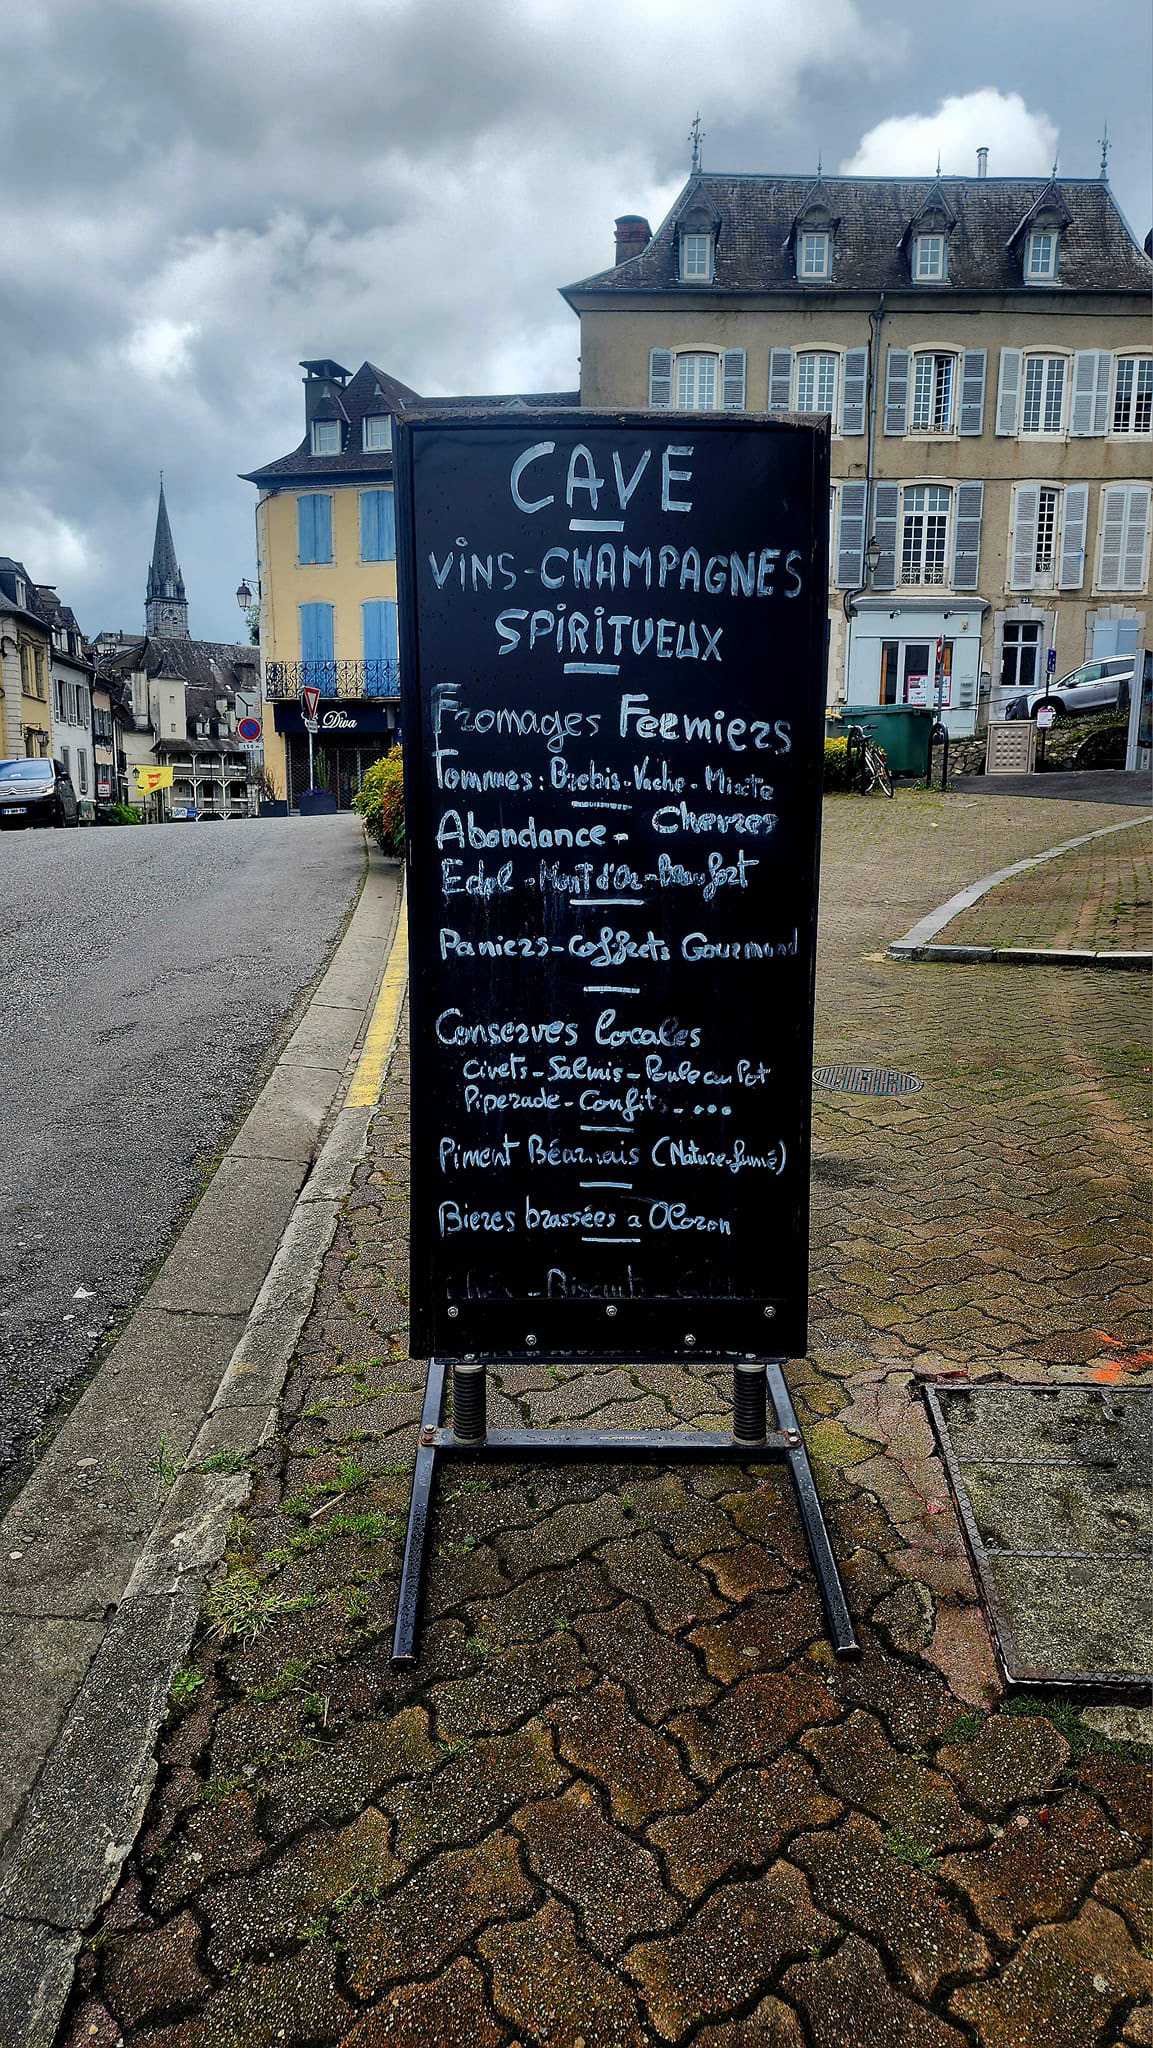 CAVE
VINS-CHAMPAGNES
SPIRITUEUX
Fromages Fermiers
Tommes: Brebis-Vache-Mixte
Abondance-Chevres
Edel-Mont d'Or-Beaufort
Paniers-Coffrets Gourmand
Conserves locales
Civets-Salmis-Poule au Pot
Piperade-Confits-...
Piment Béarnais (Nature-fumé)
Bieres brassées a Oloron
-Biscuits-
Diva